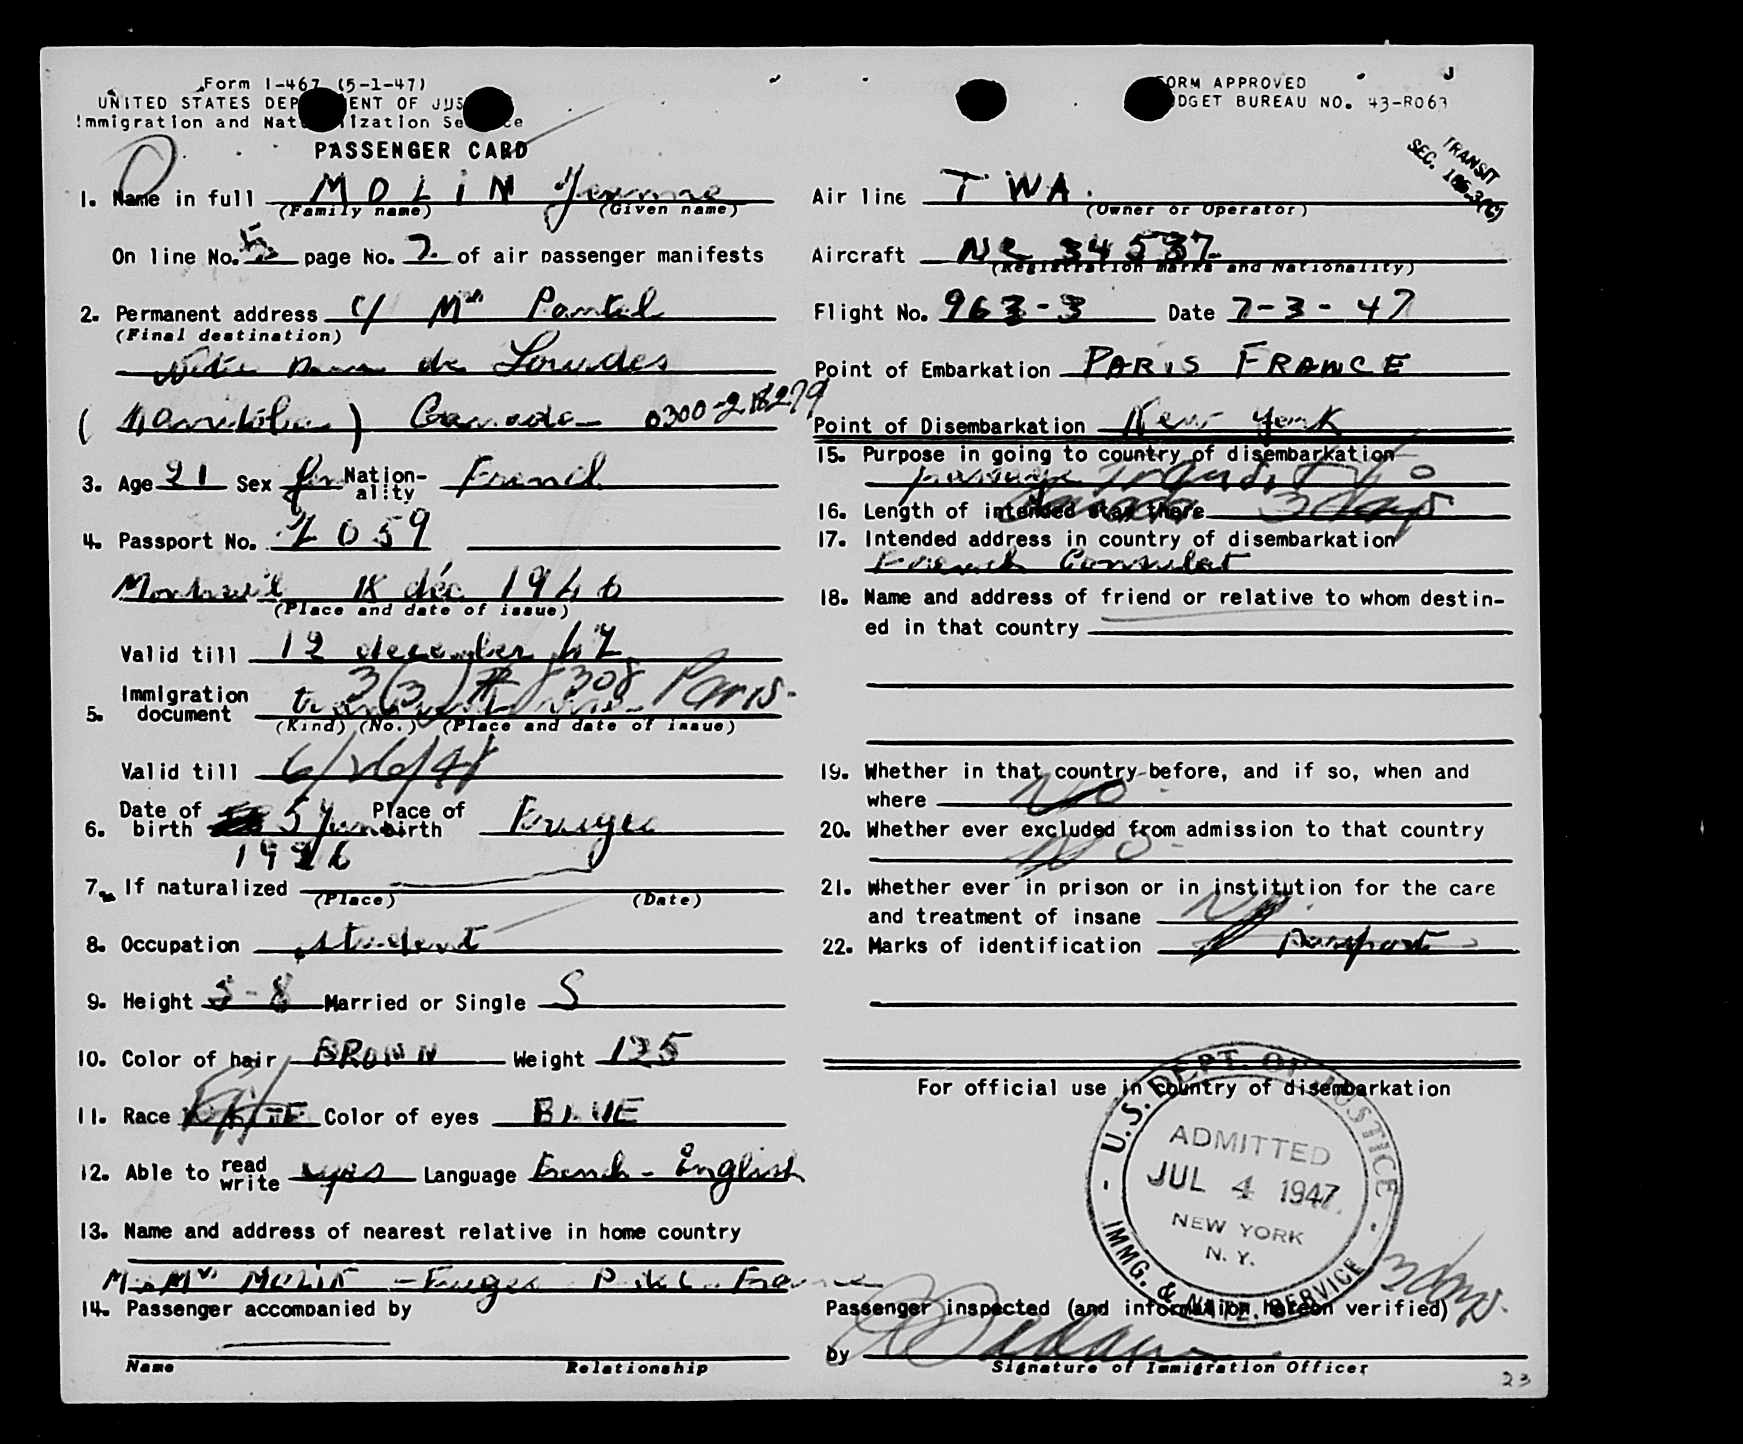 Form I-467 (5-1-47)
UNITED STATES DEP ENT OF JUS
Immigration and Nat lization Se ce
PASSENGER CARD
FORM APPROVED
DGET BUREAU NO. 43-R063
J
TRANSIT
SEC.
1. Name in full MOLIN
(Family name) (Given name)
On line No. 5 page No. 7 of air passenger manifests
2. Permanent address c/
(Final destination)
de Lourdes
(Manitoba) Canada 0300-218279
3. Age 21 Sex Fem Nation-ality French
4. Passport No. 2059
déc 1946
(Place and date of issue)
Valid till 12 december 47
5. Immigration document 3(3) 8308 Paris
(Kind) (No.) (Place and date of issue)
Valid till 6/26/48
6. Date of birth 5 Place of birth
1926
7. If naturalized
(Place) (Date)
8. Occupation student
9. Height 5-8 Married or Single S
10. Color of hair BROWN Weight 125
11. Race Color of eyes BLUE
12. Able to read write yes Language French - English
13. Name and address of nearest relative in home country
Molin France
14. Passenger accompanied by
Name Relationship
Air line TWA.
(Owner or Operator)
Aircraft NC 34537
(Registration marks and Nationality)
Flight No. 963-3 Date 7-3-47
Point of Embarkation PARIS FRANCE
Point of Disembarkation New York
15. Purpose in going to country of disembarkation
passage Transit to
Canada
16. Length of intended stay there 3 days
17. Intended address in country of disembarkation
French Consulat
18. Name and address of friend or relative to whom destin-
ed in that country
19. Whether in that country before, and if so, when and
where No
20. Whether ever excluded from admission to that country
No
21. Whether ever in prison or in institution for the care
and treatment of insane No
22. Marks of identification passport
For official use in country of disembarkation
U.S. DEPT. OF JUSTICE
ADMITTED
JUL 4 1947
NEW YORK
N.Y.
IMMG. & NATZ. SERVICE
3 days.
Passenger inspected (and information hereon verified)
by
Signature of Immigration Officer
23